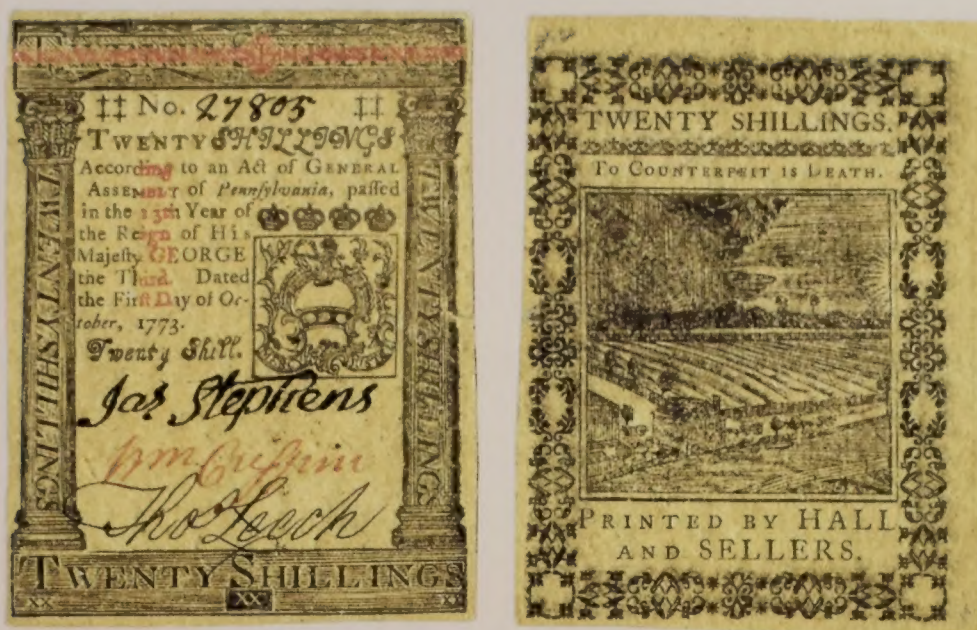 TWENTY SHILLINGS
‡‡ No. 27805 ‡‡
TWENTY SHILLINGS
According to an Act of GENERAL
ASSEMBLY of Pennſylvania, paſſed
in the 13th Year of
the Reign of His
Majeſty GEORGE
the Third. Dated
the Firſt Day of Oc-
tober, 1773.
Twenty Shill.
TWENTY SHILLINGS
TWENTY SHILLINGS
Jas Stephens
Wm Crispin
Tho Leech
TWENTY SHILLINGS
XX XX XX
TWENTY SHILLINGS.
TO COUNTERFEIT IS DEATH.
PRINTED BY HALL
AND SELLERS.